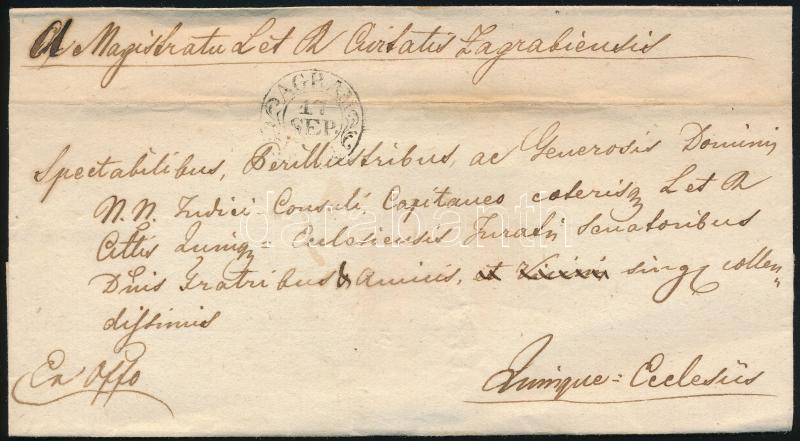 A Magistratu L et R Civitatis Zagrabiensis
AGRAM
17
SEP.
Spectabilibus, Perillustribus, ac Generosis Dominis
N. N. Judici, Consuli, Capitaneo coterisq L et R
Cittis Quinq= Ecclesiensis Juratis Senatoribus
Dnis Fratribus & Amicis, et Vicinis singq collen=
dissimis
Ex Offo
Quinque=Ecclesiis
darabanth